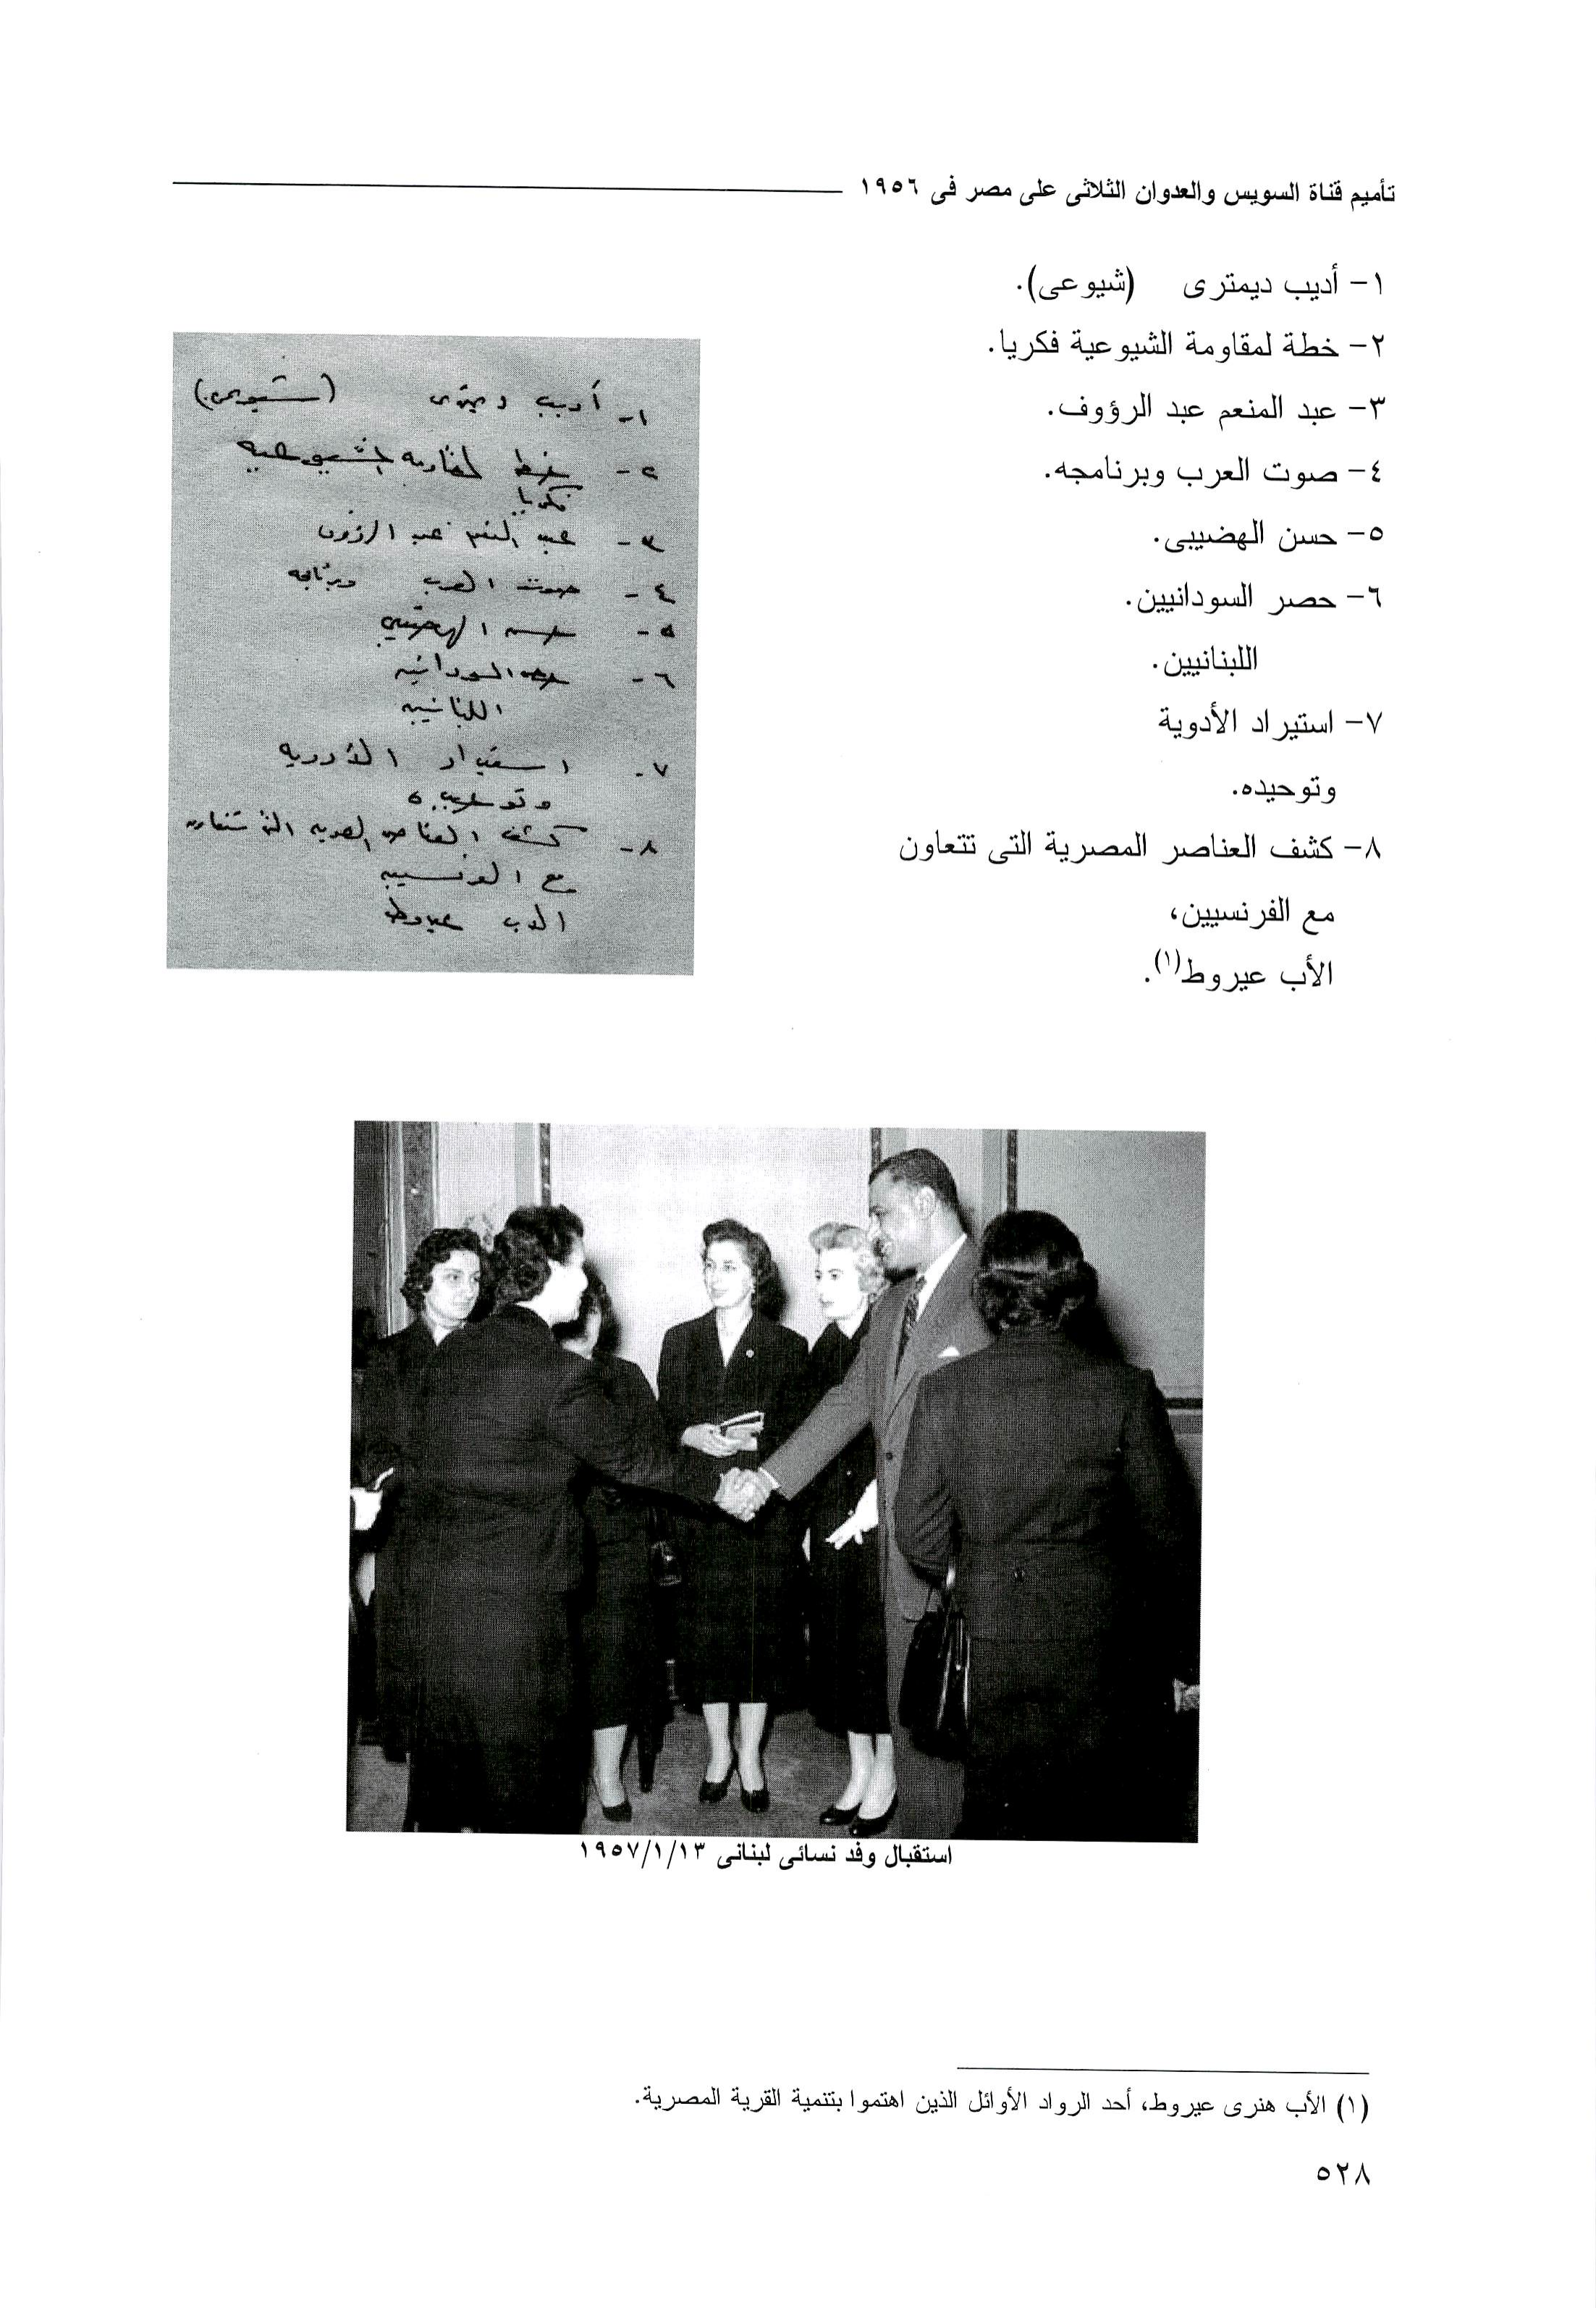 تأميم قناة السويس والعدوان الثلاثى على مصر فى ١٩٥٦
١- أديب ديمترى (شيوعى).
٢- خطة لمقاومة الشيوعية فكريا.
٣- عبد المنعم عبد الرؤوف.
٤- صوت العرب وبرنامجه.
٥- حسن الهضيبى.
٦- حصر السودانيين.
اللبنانيين.
٧- استيراد الأدوية
وتوحيده.
٨- كشف العناصر المصرية التى تتعاون
مع الفرنسيين،
الأب عيروط(١).
١- أديب ديمترى (شيوعى)
٢- خطة لمقاومة الشيوعية
فكريا
٣- عبد المنعم عبد الرؤوف
٤- صوت العرب وبرنامجه
٥- حسن الهضيبى
٦- حصر السودانيين
اللبنانيين
٧- استيراد الأدوية
وتوحيده
٨- كشف العناصر المصرية التى تتعاون
مع الفرنسيين
الأب عيروط
استقبال وفد نسائى لبنانى ١٩٥٧/١/١٣
(١) الأب هنرى عيروط، أحد الرواد الأوائل الذين اهتموا بتنمية القرية المصرية.
٥٢٨